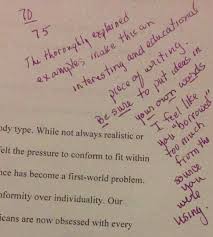 70
75
The thoroughly explained
examples make this an
interesting and educational
piece of writing.
Be sure to put ideas in
your own words
I feel like
you "borrowed"
too much
from the
source
you
were
using.
ody type. While not always realistic or
felt the pressure to conform to fit within
nce has become a first-world problem.
nformity over individuality. Our
icans are now obsessed with every